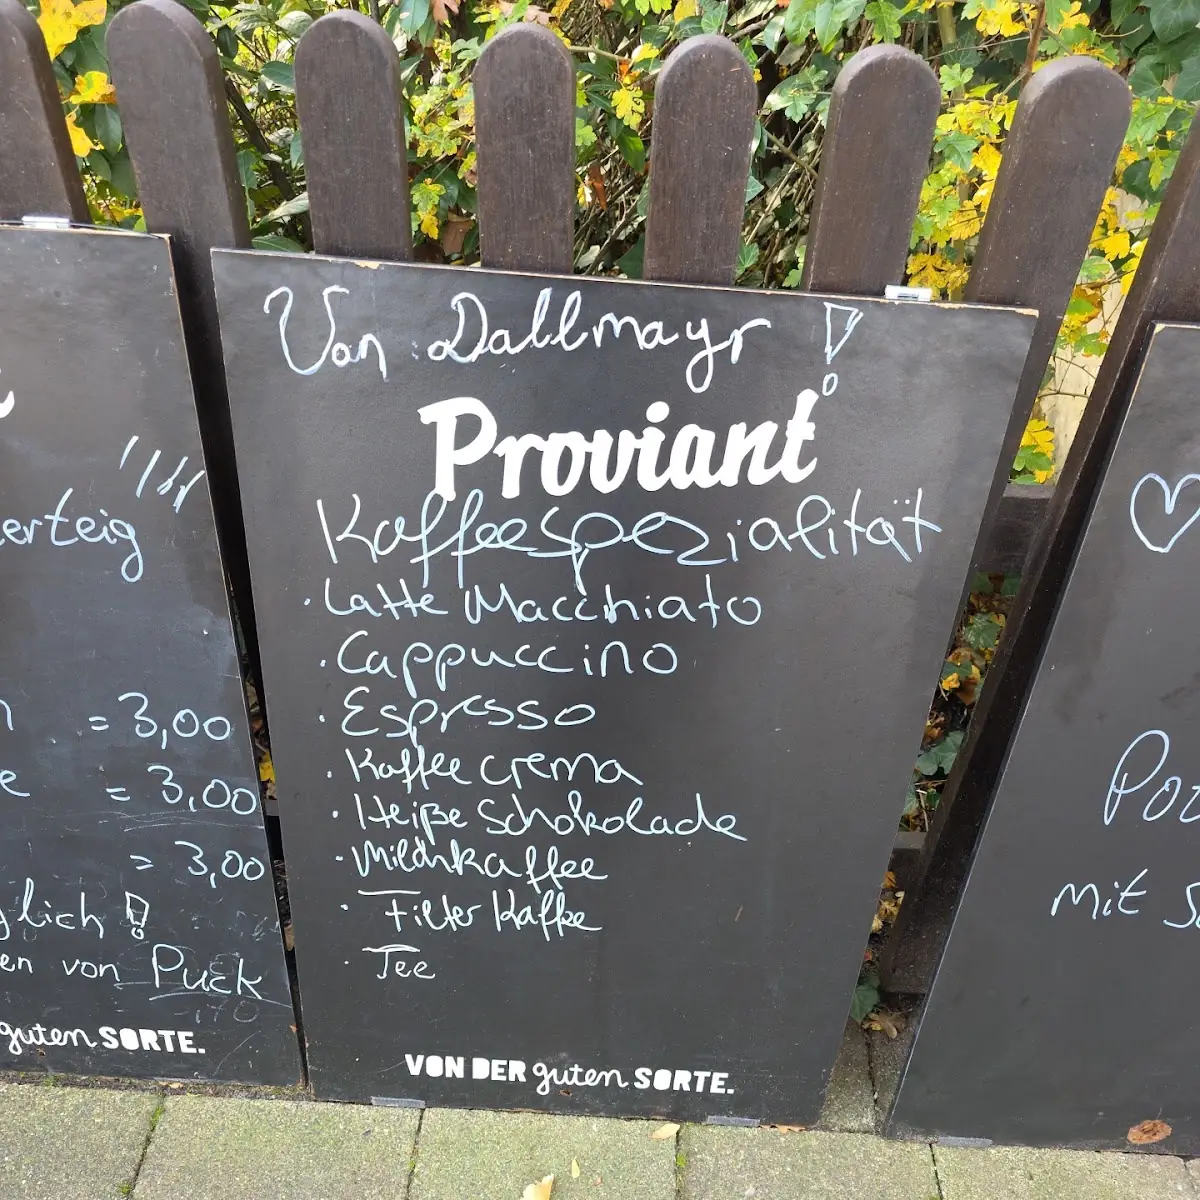 erteig
= 3,00
= 3,00
= 3,00
glich !
en von Puck
guten SORTE.
Von Dallmayr !
Proviant
Kaffeespezialität
· Latte Macchiato
· Cappuccino
· Espresso
· Kaffee crema
· Heiße Schokolade
· Milchkaffee
· Filter Kaffee
· Tee
VON DER guten SORTE.
Poz
mit S